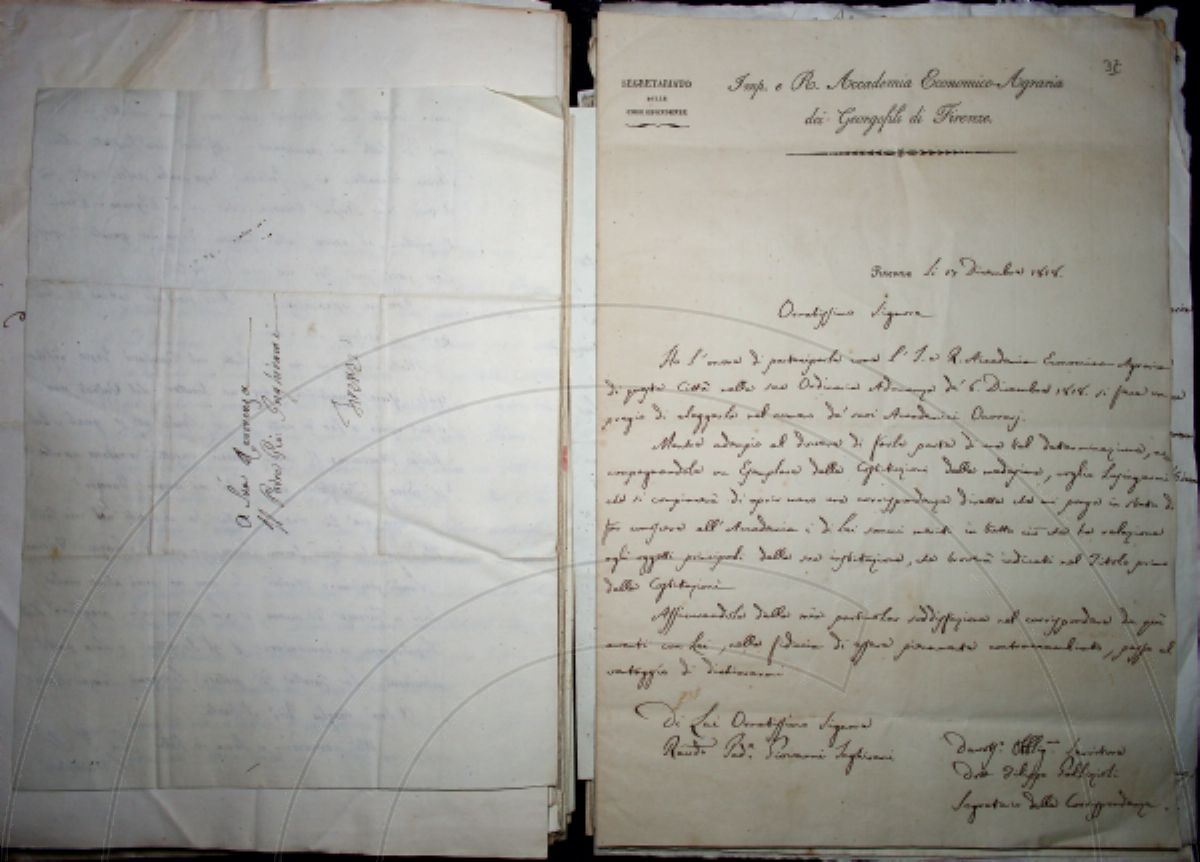 A Sua Reverenza
Il Padre Gio: Inghirami
Firenze
37
SEGRETARIATO
DELLE
CORRISPONDENZE
Imp. e R. Accademia Economico-Agraria
dei Georgofili di Firenze.
Firenze li 17 Dicembre 1818.
Ornatissimo Signore
Ho l'onore di parteciparle come l'I. e R. Accademia Economico-Agraria
di questa Città nella sua Ordinaria Adunanza de' 6 Dicembre 1818. si fece un
pregio di eleggerlo nel numero de' suoi Accademici Onorarj.
Mentre adempio al dovere di farle parte di una tal determinazione,
compagnandole un Esemplare delle Costituzioni della medesima, voglio lusingarmi
che si compiacerà di aprir meco una corrispondenza diretta che mi ponga in stato di
far conoscere all'Accademia i di Lei sommi meriti in tutto ciò che ha relazione
agli oggetti principali della sua istituzione, che troverà indicati nel Titolo primo
delle Costituzioni.
Assicurandola della mia particolar soddisfazione nel corrispondere da qui
avanti con Lei, nella fiducia di essere pienamente contraccambiato, passo al
vantaggio di dichiararmi
Di Lei Ornatissimo Signore
Rendo Pad. Giovanni Inghirami
Devott. Obblig. Servitore
Dott. Filippo Gallizioli
Segretario delle Corrispondenze.